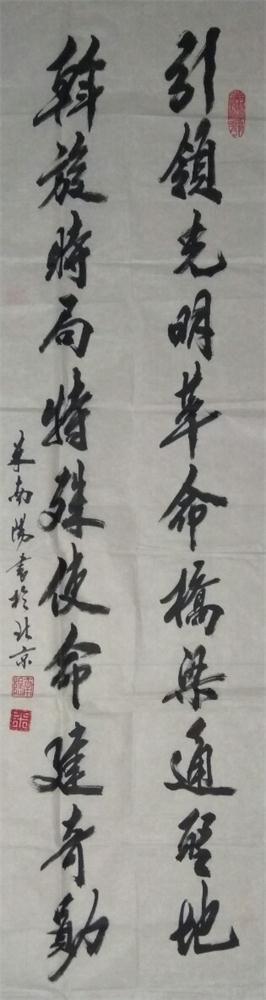 引領光明革命橋梁通聖地
斡旋時局特殊使命建奇勳
朱南陽書於北京